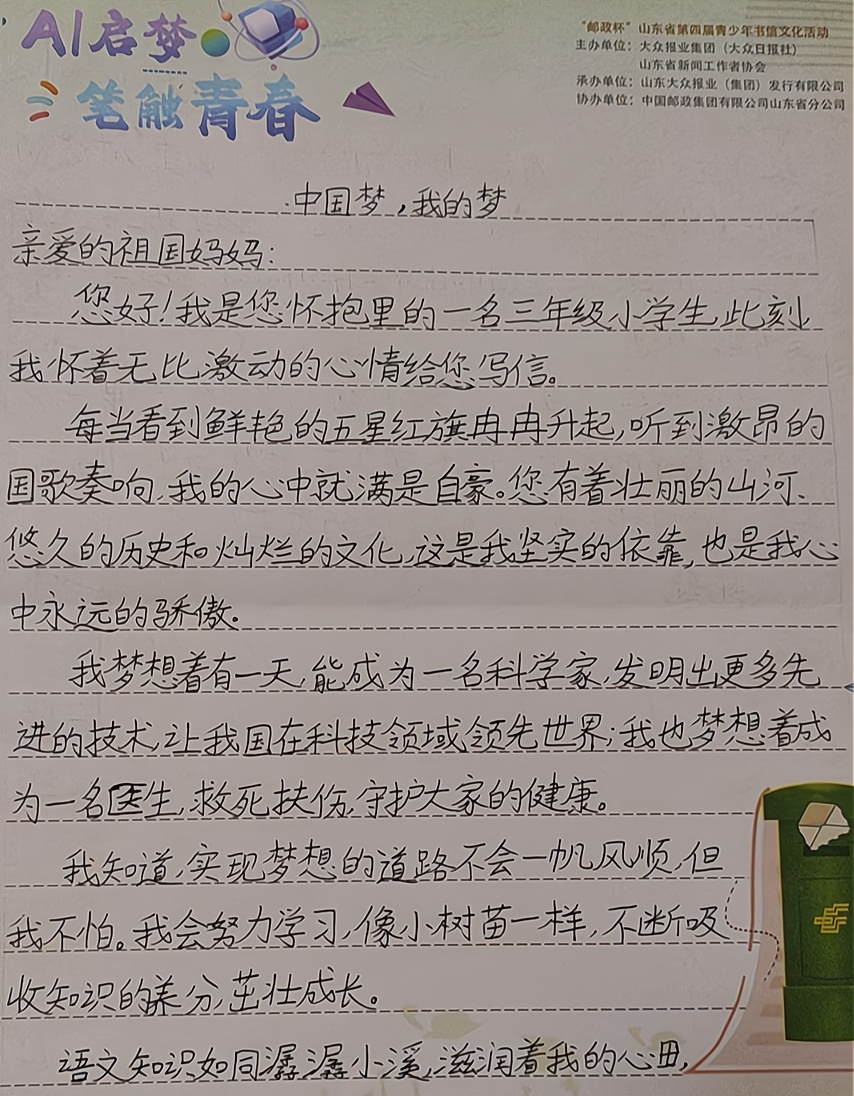 AI启梦
笔触青春
“邮政杯”山东省第四届青少年书信文化活动
主办单位：大众报业集团（大众日报社）
山东省新闻工作者协会
承办单位：山东大众报业（集团）发行有限公司
协办单位：中国邮政集团有限公司山东省分公司
中国梦，我的梦
亲爱的祖国妈妈：
您好！我是您怀抱里的一名三年级小学生，此刻
我怀着无比激动的心情给您写信。
每当看到鲜艳的五星红旗冉冉升起，听到激昂的
国歌奏响，我的心中就满是自豪。您有着壮丽的山河、
悠久的历史和灿烂的文化，这是我坚实的依靠，也是我心
中永远的骄傲。
我梦想着有一天，能成为一名科学家，发明出更多先
进的技术，让我国在科技领域领先世界；我也梦想着成
为一名医生，救死扶伤，守护大家的健康。
我知道，实现梦想的道路不会一帆风顺，但
我不怕。我会努力学习，像小树苗一样，不断吸
收知识的养分，茁壮成长。
语文知识如同潺潺小溪，滋润着我的心田，